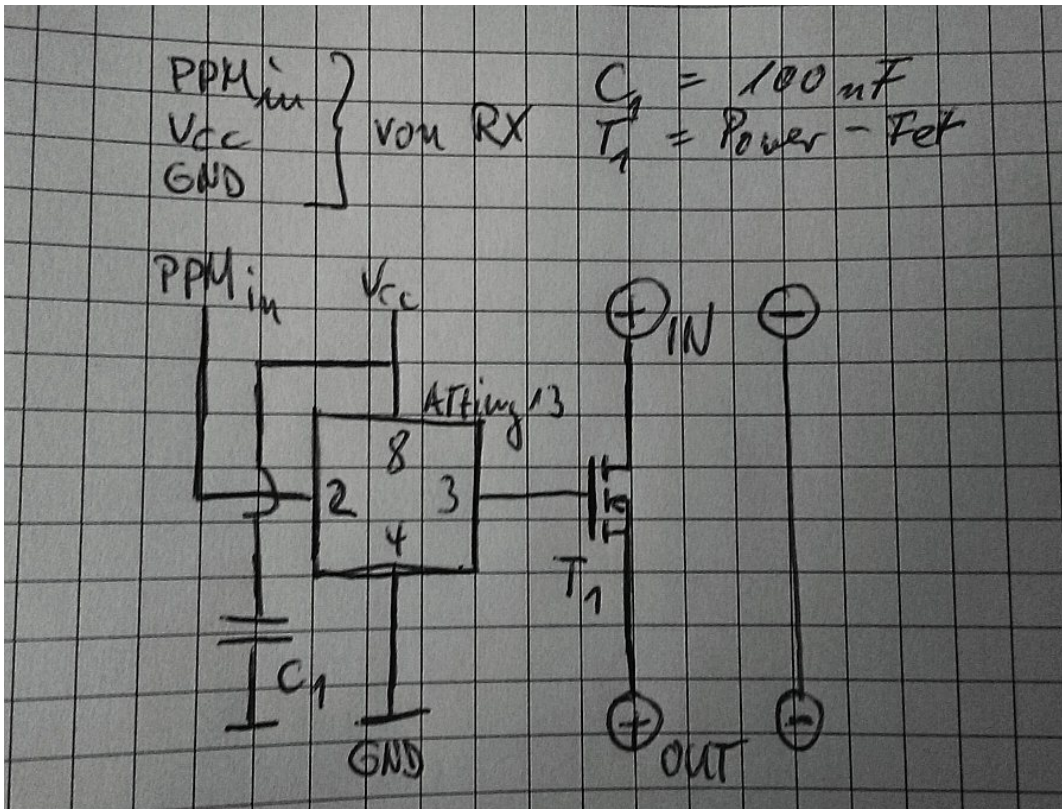 PPM in
Vcc } von RX
GND
C1 = 100 nF
T1 = Power-Fet
PPM in
Vcc
IN
ATtiny 13
8
2
3
4
T1
C1
GND
OUT
+
-
+
-